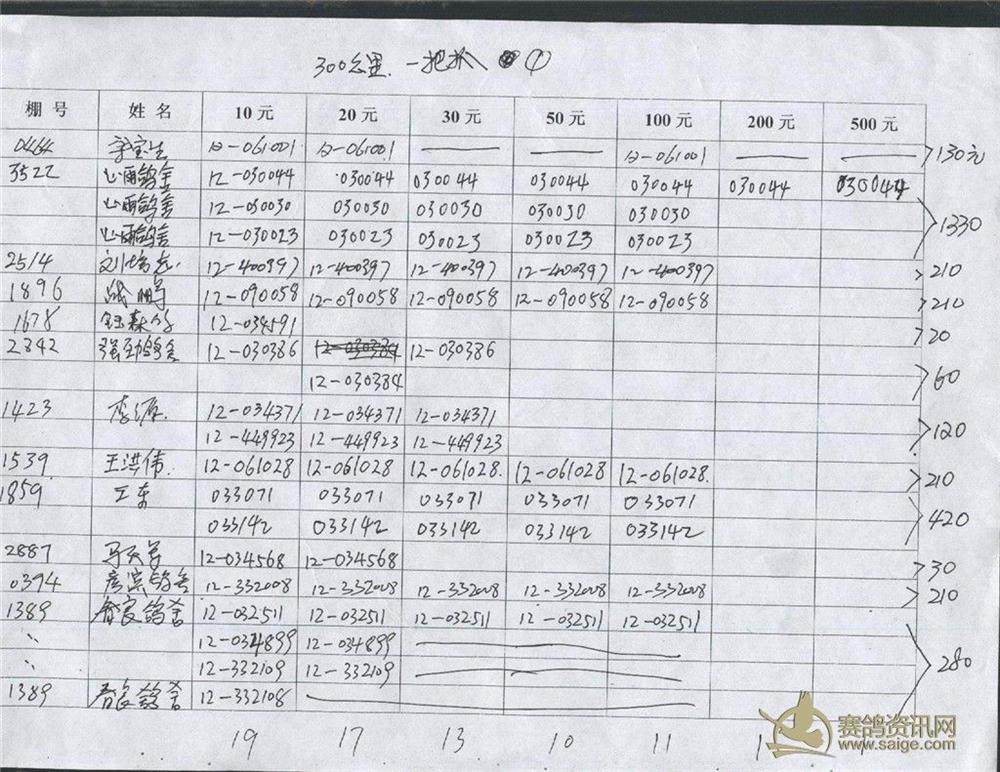 300公里 一把抓 ①
棚号 姓名 10元 20元 30元 50元 100元 200元 500元
0464 李宝生 12-061001 12-061001 — — 12-061001 — — >130元
3522 心雨鸽舍 12-030044 030044 030044 030044 030044 030044 030044
心雨鸽舍 12-030030 030030 030030 030030 030030 >1330
心雨鸽舍 12-030023 030023 030023 030023 030023
2514 12-400397 12-400397 12-400397 12-400397 12-400397 >210
1896 12-090058 12-090058 12-090058 12-090058 12-090058 >210
1678 12-034591 >20
2342 强劲鸽舍 12-030386 12-030384 12-030386
12-030384 >60
1423 李源 12-034371 12-034371 12-034371
12-449923 12-449923 12-449923 >120
1539 王洪伟 12-061028 12-061028 12-061028 12-061028 12-061028 >210
1859 王东 033071 033071 033071 033071 033071
033142 033142 033142 033142 033142 >420
2887 12-034568 12-034568 >30
0394 12-332008 12-332008 12-332008 12-332008 12-332008 >210
1389 春良鸽舍 12-032511 12-032511 12-032511 12-032511 12-032511
〃 12-034899 12-034899 —
〃 12-332109 12-332109 — >280
1389 春良鸽舍 12-332108 —
19 17 13 10 11 1 1
赛鸽资讯网
www.saige.com